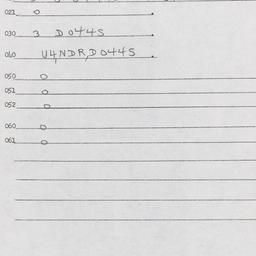 021 0 .
030 3 D0445 .
040 U4,NDR,D0445 .
050 0
051 0
052 0
060 0
061 0